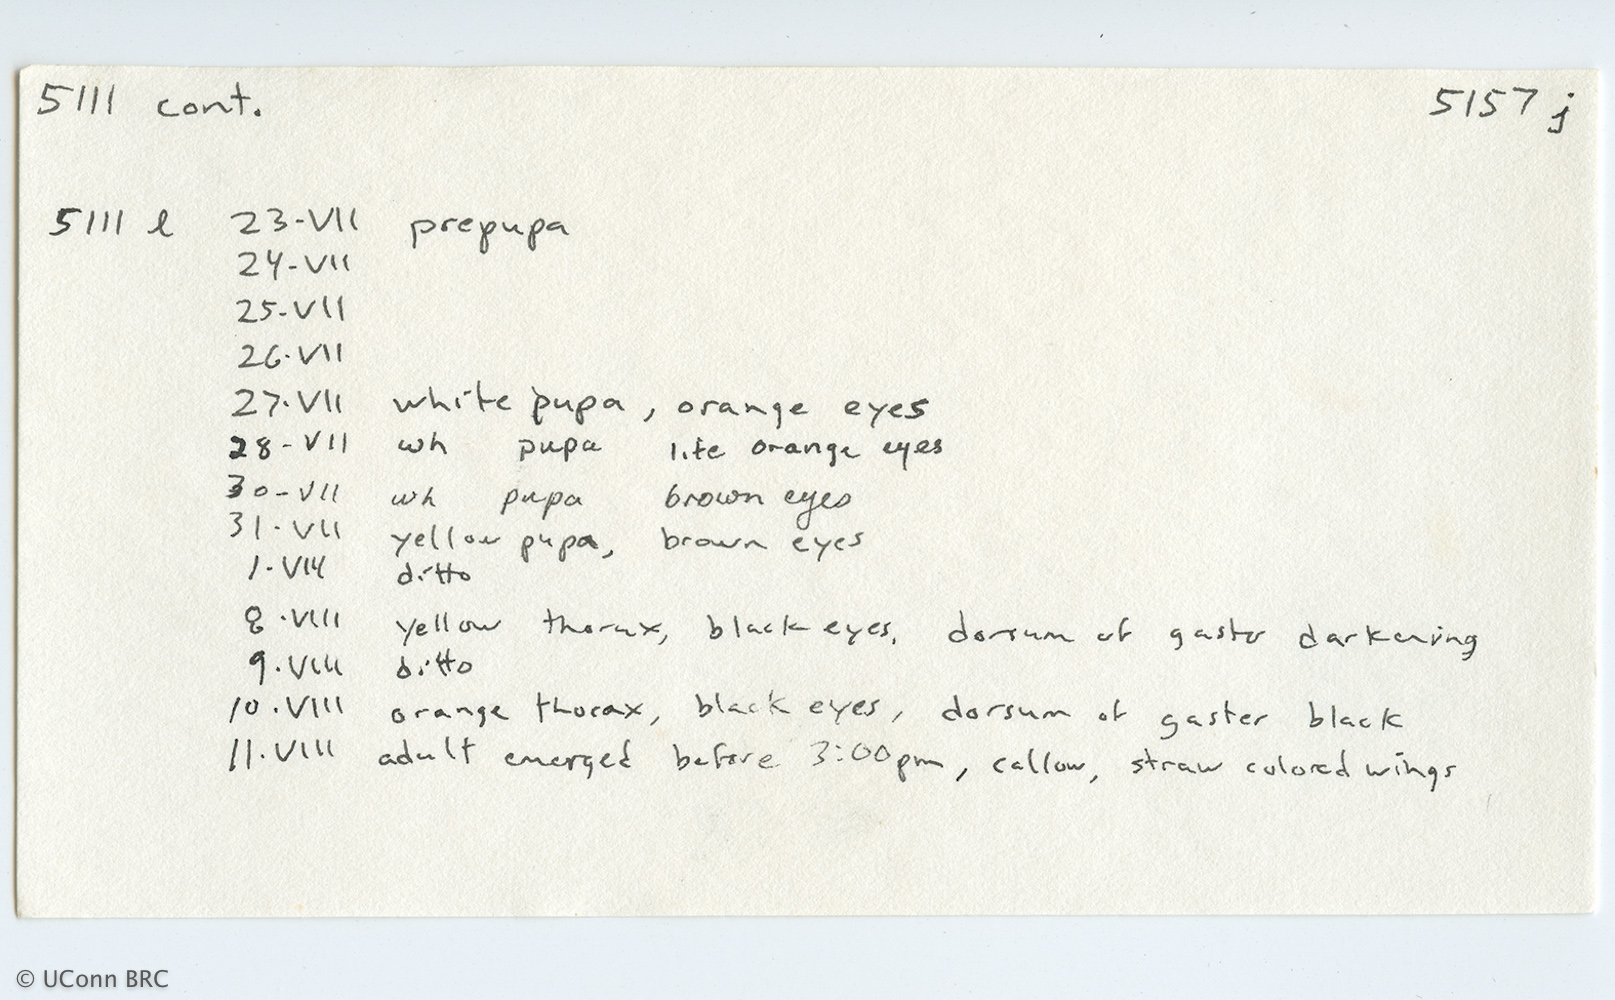 5111 cont. 5157 j
5111 l 23-VII prepupa
24-VII
25-VII
26-VII
27-VII white pupa, orange eyes
28-VII wh pupa lite orange eyes
30-VII wh pupa brown eyes
31-VII yellow pupa, brown eyes
1-VIII ditto
8-VIII yellow thorax, black eyes, dorsum of gaster darkening
9-VIII ditto
10-VIII orange thorax, black eyes, dorsum of gaster black
11-VIII adult emerged before 3:00pm, callow, straw colored wings
© UConn BRC